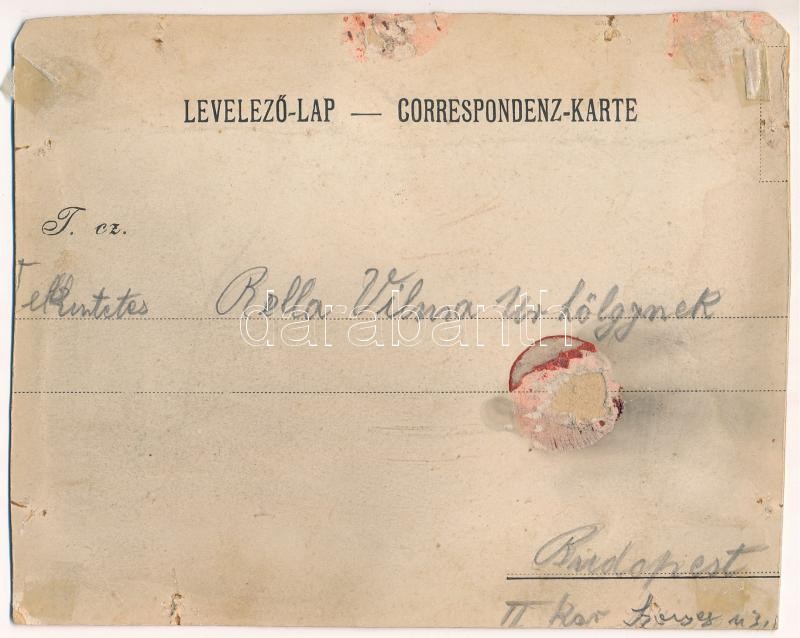 LEVELEZŐ-LAP — CORRESPONDENZ-KARTE
T. cz.
Tekintetes Rella Vilma Ur hölgynek
darabanth
Budapest
II Kar